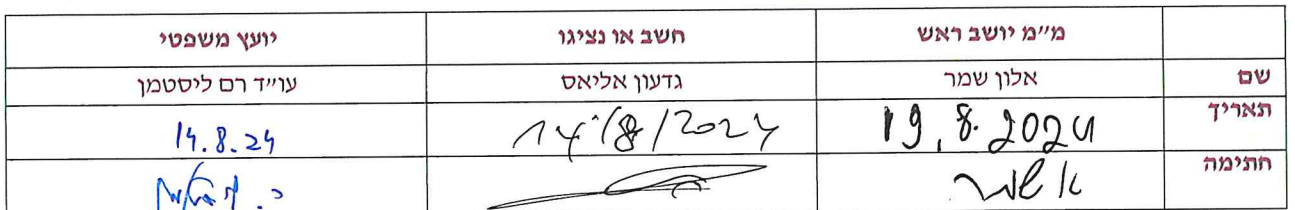 מ״מ יושב ראש חשב או נציגו יועץ משפטי
שם אלון שמר גדעון אליאס עו״ד רם ליסטמן
תאריך 19.8.2024 14/8/2024 14.8.24
חתימה א שמר